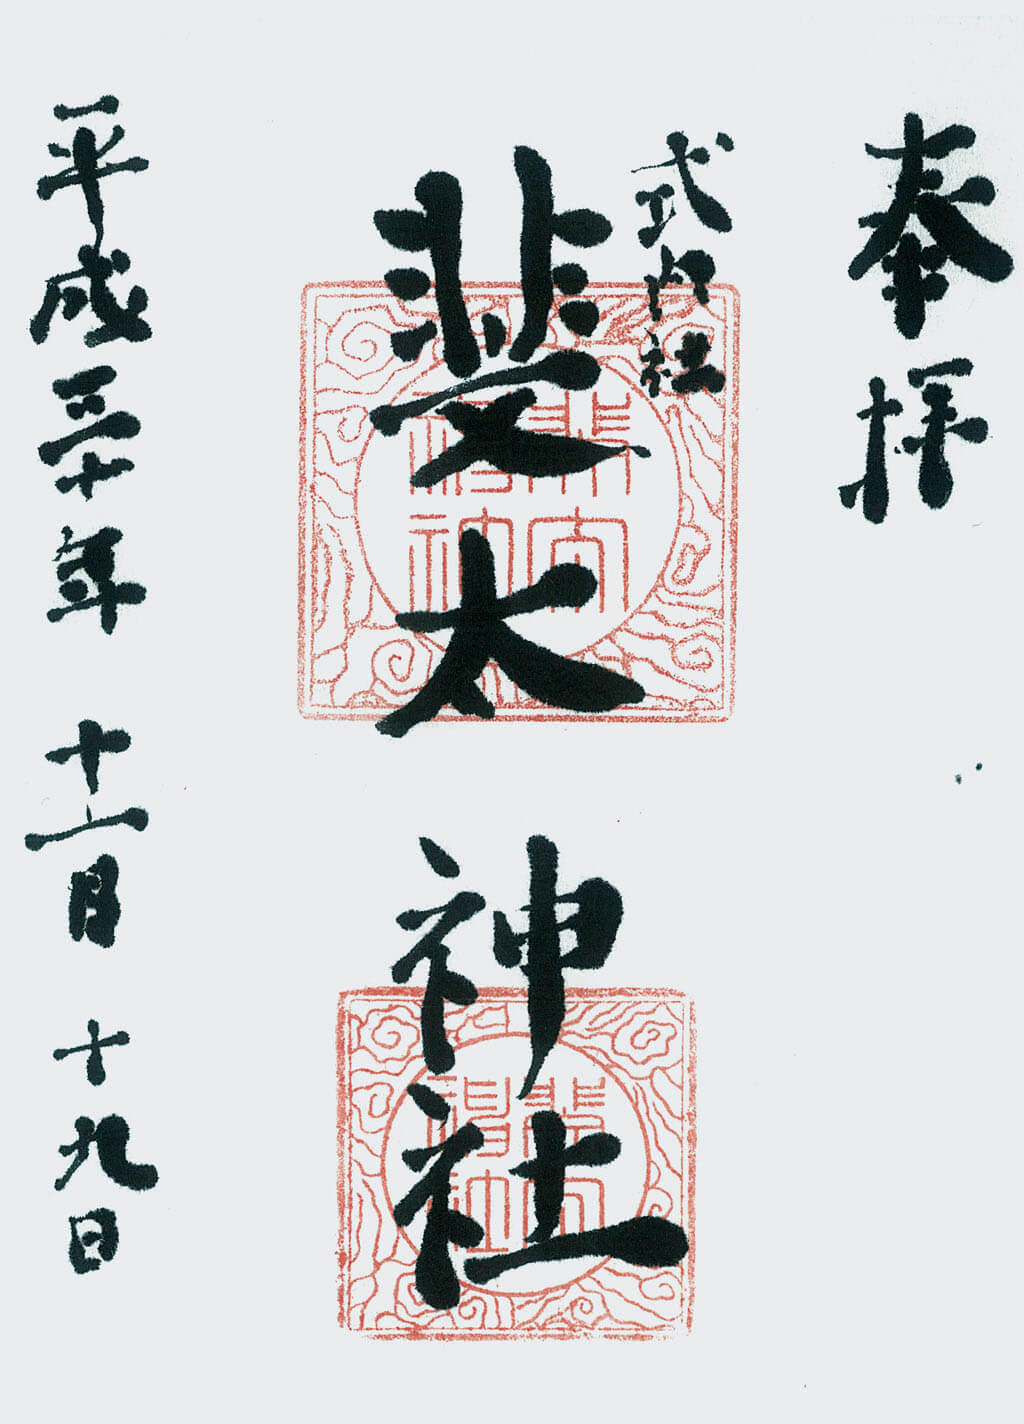 奉拝
式内社
斐太神社
平成三十年十一月十九日